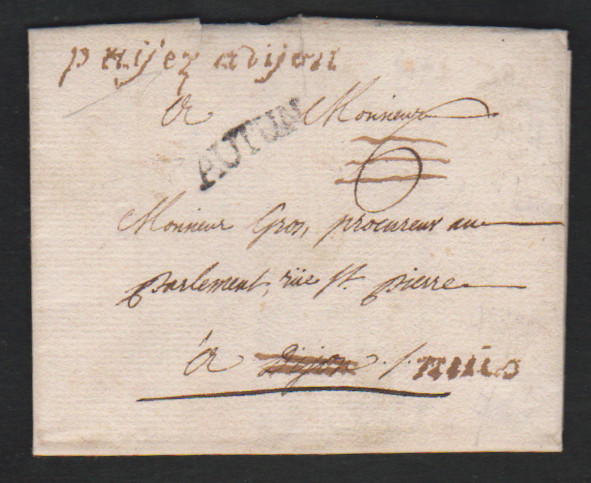 païjez a dijon
A Monsieur
AUTUN
6
Monsieur Gros, procureur au
parlement, rüe St. pierre
à Dijon ./. nuis